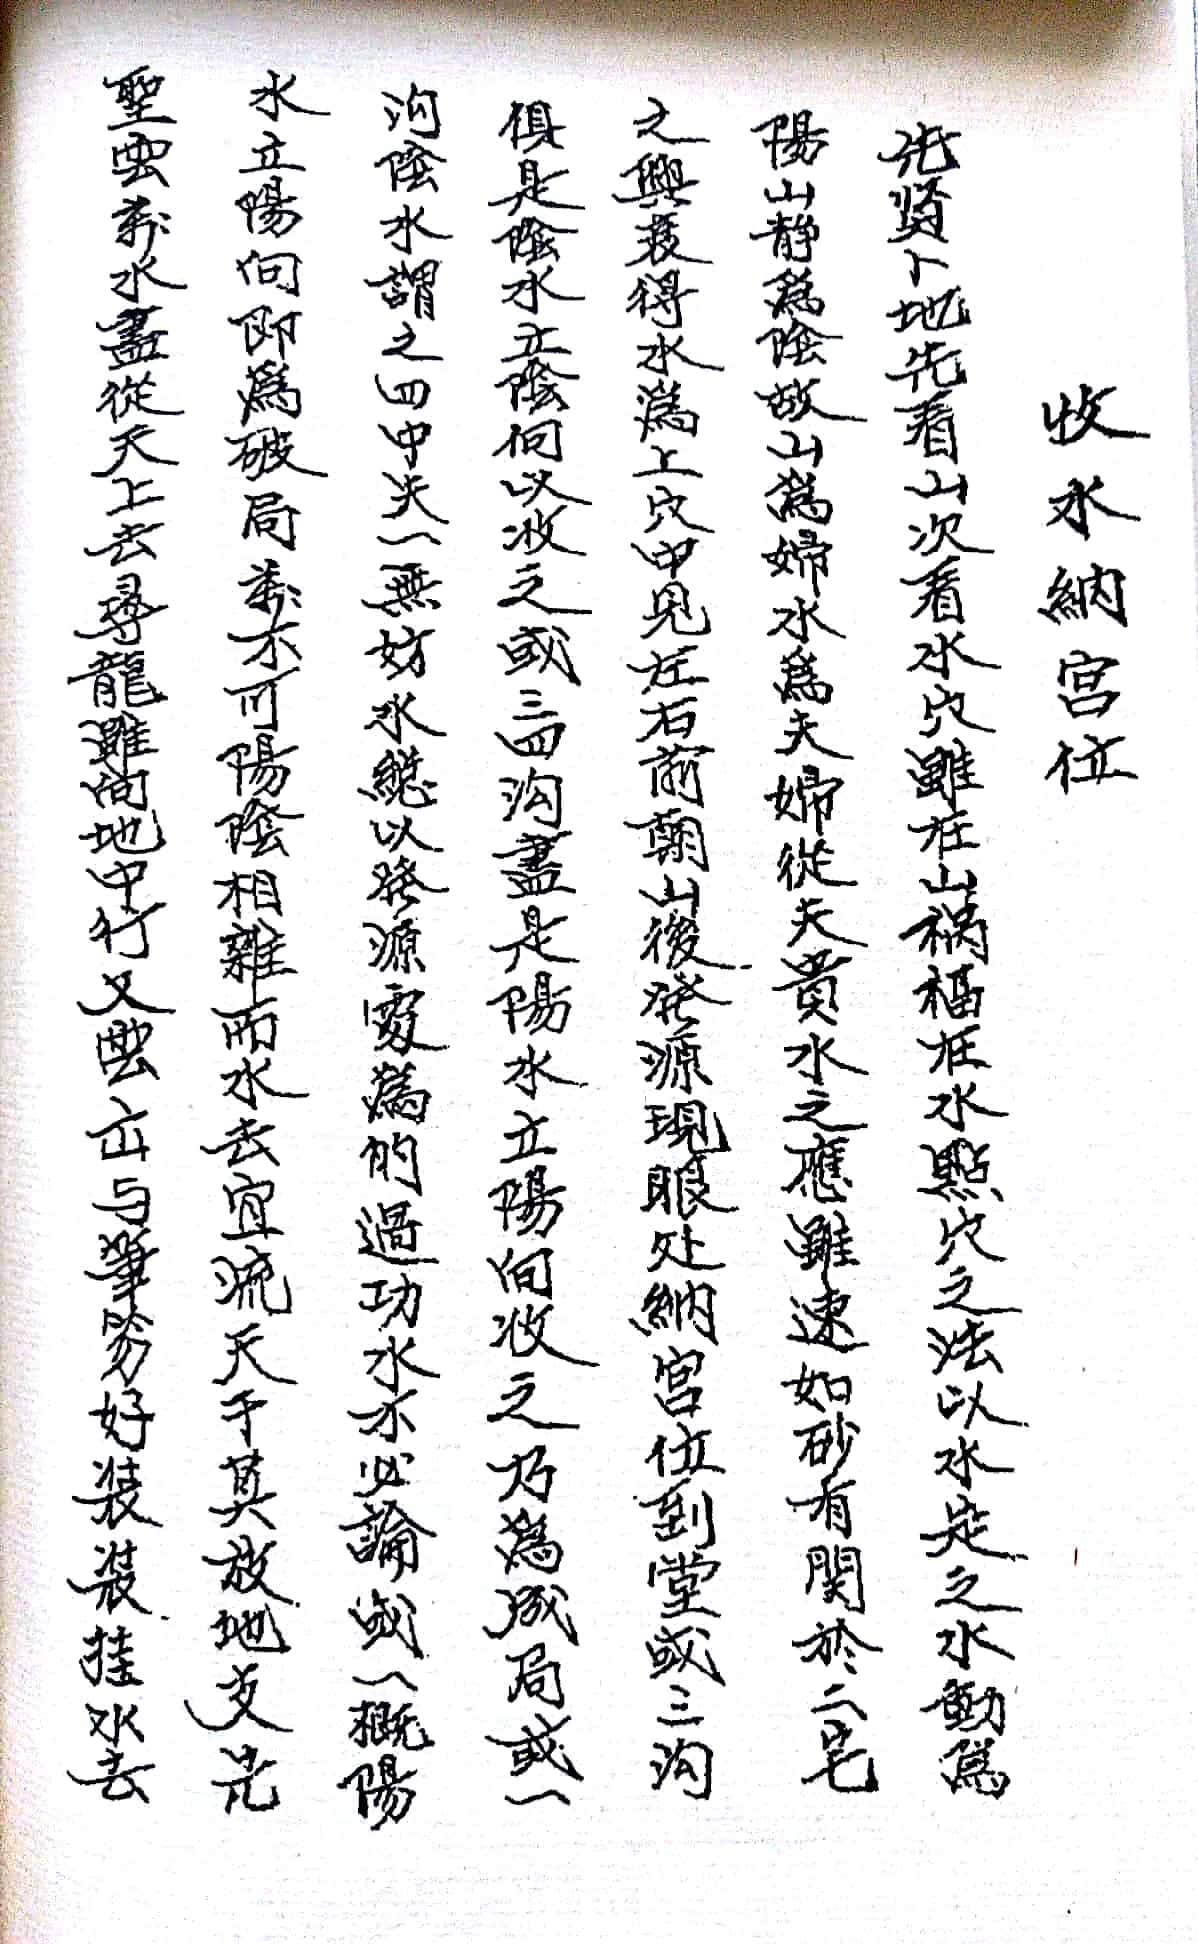 收水納宮位
先贤卜地先看山次看水穴雖在山禍福在水點穴之法以水定之水動爲
陽山静爲陰故山爲婦水爲夫婦從夫貴水之應雖速如砂有関於二宅
之興衰得水爲上穴中見左右前朝山後発源現眼处納宮位到堂或三沟
俱是陰水立陰向以收之或三四沟盡是陽水立陽向收之乃爲成局或一
沟陰水謂之四中失一無妨水總以発源處爲的過功水不必論或一概陽
水立陽向即爲破局萬不可陽陰相雜而水去宜流天干莫放地支先
聖雲萬水盡從天上去尋龍雖向地中行又雲立与筆
好装装挂水去